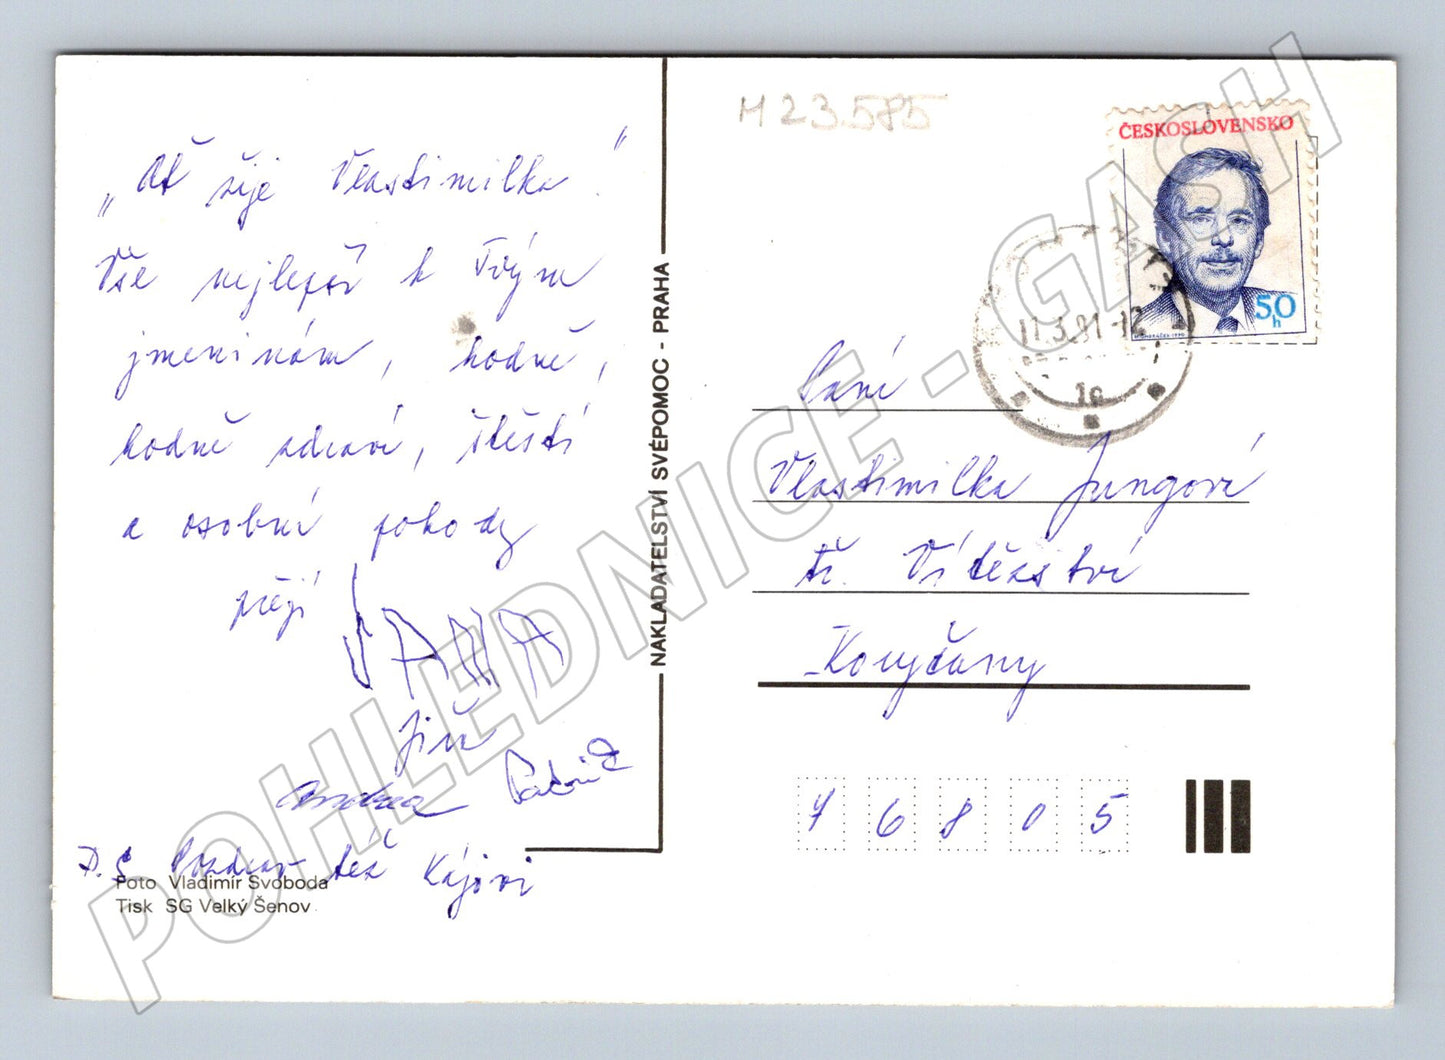 „Ať žije Vlastimilka!"
Vše nejlepší k Tvým
jmeninám, hodně,
hodně zdraví, štěstí
a osobní pohody
přejí
JANA
Jiří
Andrea Patrik
P.S. Pozdrav též Kájovi
Foto Vladimír Svoboda
Tisk SG Velký Šenov
NAKLADATELSTVÍ SVÉPOMOC - PRAHA
M 23.585
ČESKOSLOVENSKO
50
h
11.3.91-12
1c
Paní
Vlastimilka Jungová
tř. Vítězství
Koryčany
76805
POHLEDNICE - GASH